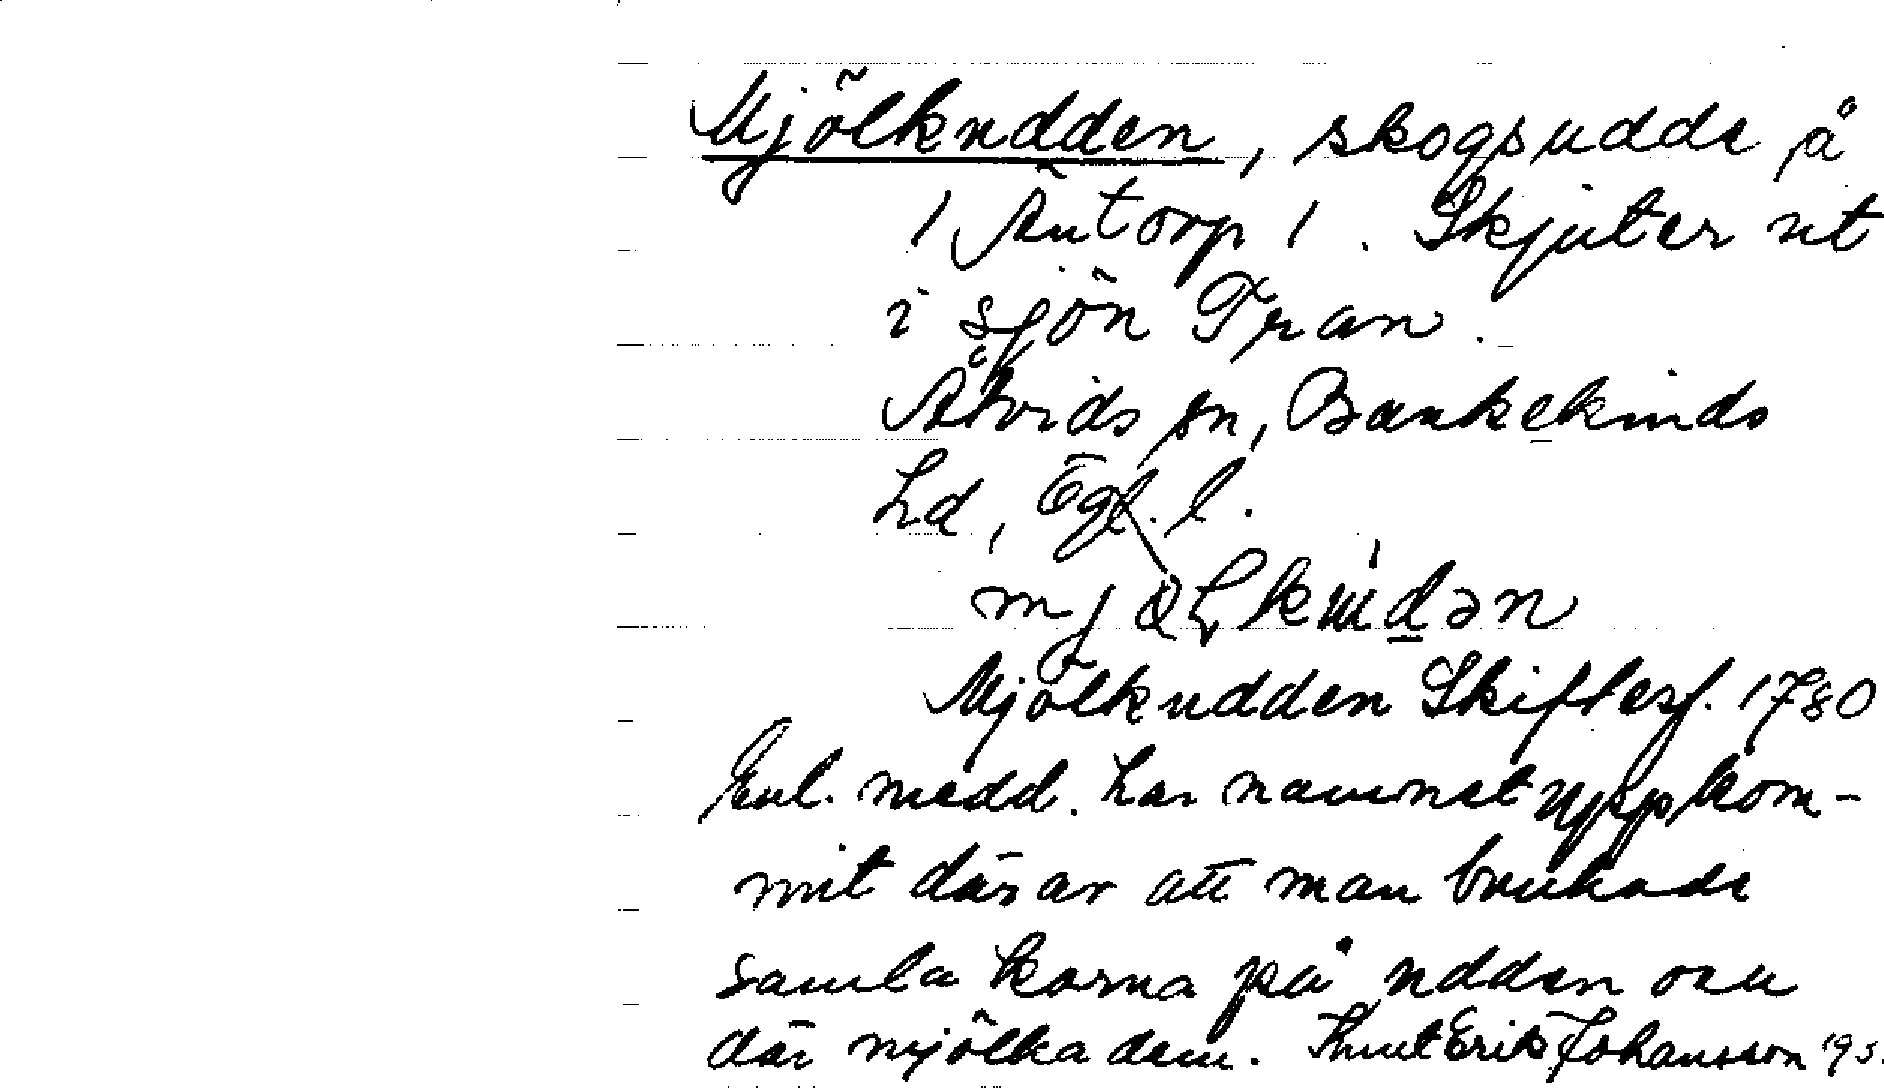 Mjölkudden, skogsudde på
/ Äntorp /. Skjuter ut
i sjön Tran.
Åtvids sn, Bankekinds
hd, Ögl. l.
Mjölkudden Skiftesf. 1780
Enl. medd. har namnet uppkom-
mit därav att man brukade
samla korna på udden och
där mjölka dem. Knut Erik Johansson 195